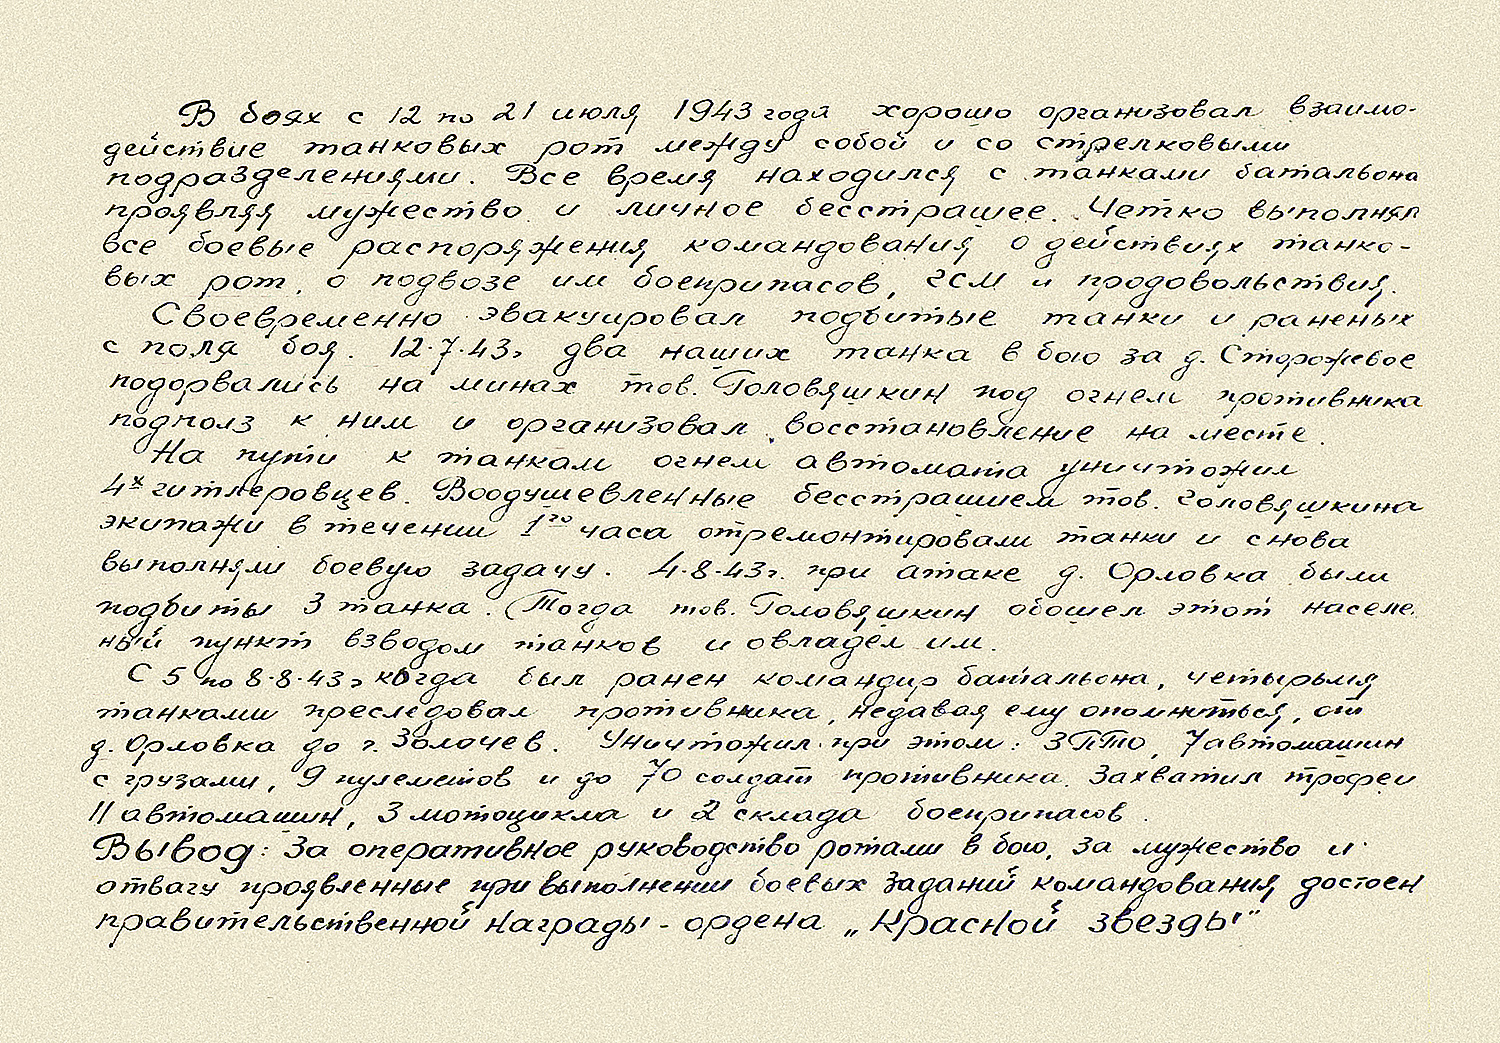 В боях с 12 по 21 июля 1943 года хорошо организовал взаимо-
действие танковых рот между собой и со стрелковыми
подразделениями. Все время находился с танками батальона
проявляя мужество и личное бесстрашее. Четко выполнял
все боевые распоряжения командования о действиях танко-
вых рот, о подвозе им боеприпасов, гсм и продовольствия.
Своевременно эвакуировал подбитые танки и раненых
с поля боя. 12.7.43г два наших танка в бою за д. Сторожевое
подорвались на минах тов. Головяшкин под огнем противника
подполз к ним и организовал восстановление на месте.
На пути к танкам огнем автомата уничтожил
4х гитлеровцев. Воодушевленные бесстрашием тов. Головяшкина
экипажи в течении 1го часа отремонтировали танки и снова
выполняли боевую задачу. 4.8.43г. при атаке д. Орловка были
подбиты 3 танка. Тогда тов. Головяшкин обошел этот населе
ный пункт взводом танков и овладел им.
С 5 по 8.8.43г когда был ранен командир батальона, четырьмя
танками преследовал противника, недавая ему опомниться, от
д. Орловка до г. Золочев. Уничтожил при этом: 3 ПТО, 7 автомашин
с грузами, 9 пулеметов и до 70 солдат противника. Захватил трофеи
11 автомашин, 3 мотоцикла и 2 склада боеприпасов.
Вывод: За оперативное руководство ротами в бою, за мужество и
отвагу проявленные при выполнении боевых заданий командования, достоен
правительственной награды - ордена „Красной звезды"